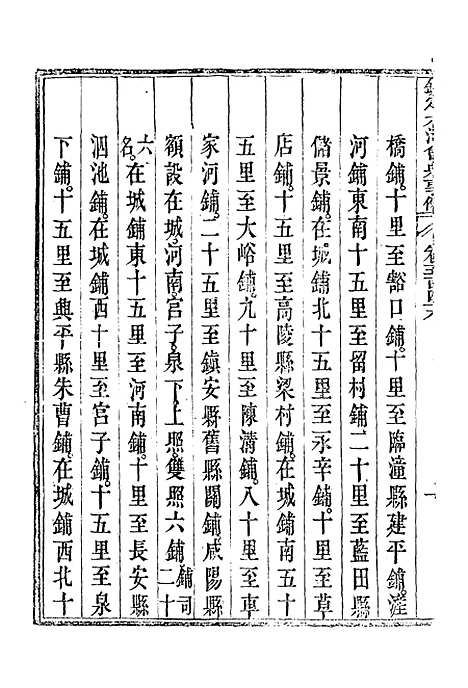 欽定大清會典事例 卷五百四六
橋鋪十里至豁口鋪十里至臨潼縣建平鋪滻
河鋪東南十五里至留村鋪二十里至藍田縣
儲景鋪在城鋪北十五里至永辛鋪十里至草
店鋪十五里至高陵縣梁村鋪在城鋪南五十
五里至大峪鋪九十里至陳溝鋪八十里至車
家河鋪二十五里至鎮安縣舊縣關鋪咸陽縣
額設在城河南宮子泉下上照雙照六鋪鋪司二十
六名在城鋪東十五里至河南鋪十里至長安縣
泗池鋪在城鋪西十里至宮子鋪十五里至泉
下鋪十五里至興平縣朱曹鋪在城鋪西北十